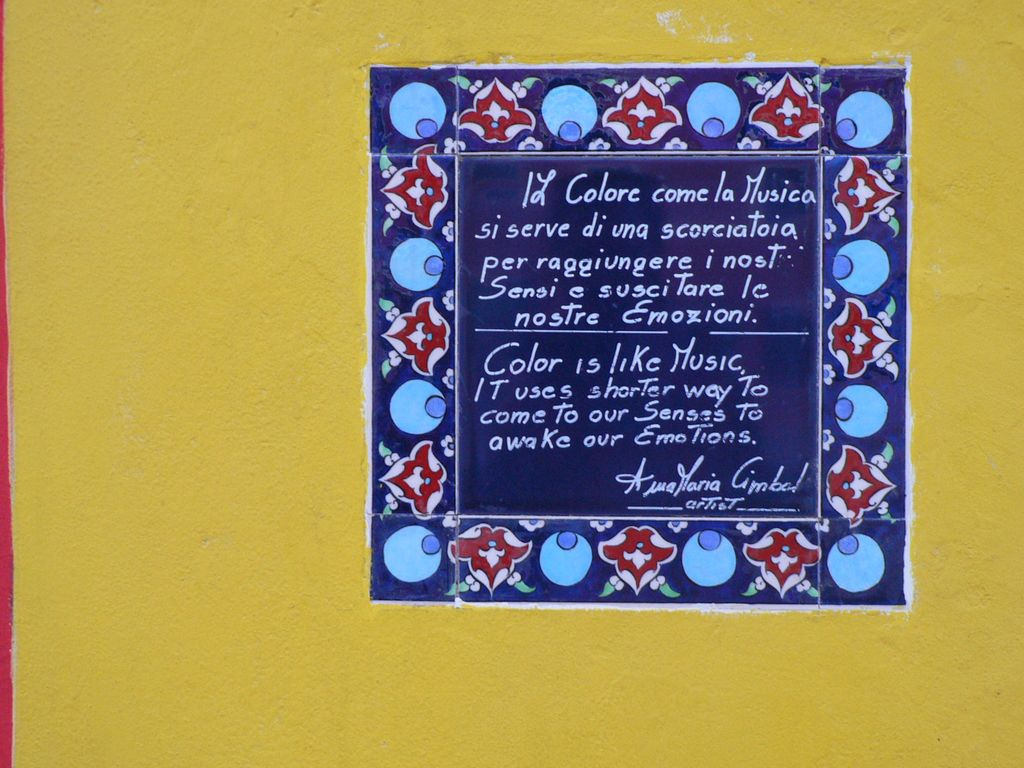 Il Colore come la Musica
si serve di una scorciatoia
per raggiungere i nost
Sensi e suscitare le
nostre Emozioni.
Color is like Music,
IT uses shorter way To
come To our Senses To
awake our EmoTions.
AnnaMaria
artist